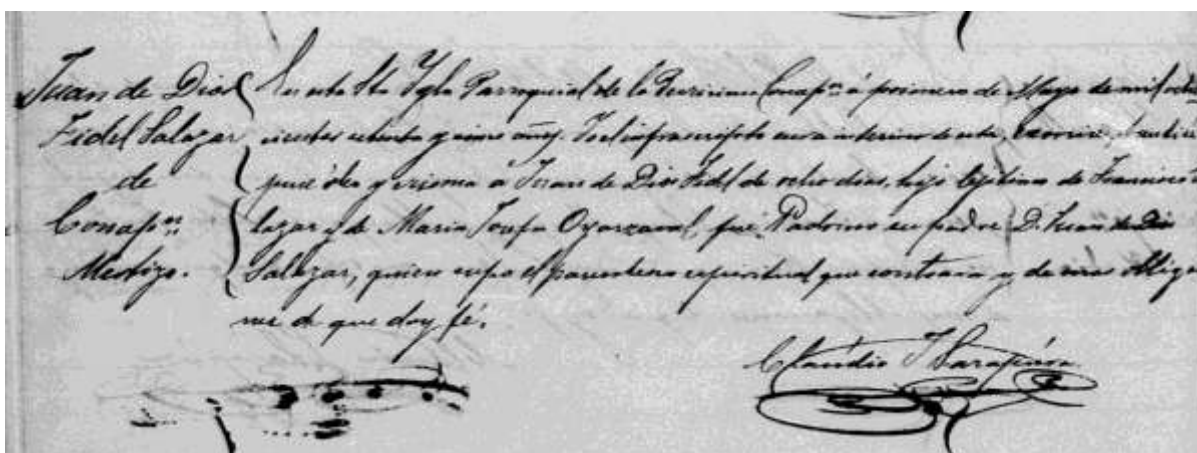 Juan de Dios
Fidel Salazar
de
Concep.on
Mestizo.
En esta Sta Ygla Parroquial de la Purisima Concep.on á primero de Mayo de mil ocho
cientos y cinco años. Yo el infrascripto cura interino de esta, bautice
puse óleo y crisma á Juan de Dios Fidel de ocho dias, hijo lejitimo de Francisco
lazar y de Maria Josefa Oyarzaval, fué Padrino su padre D. Juan de Dios
Salazar, quien supo el parentesco espiritual que contraia y demas obliga
nes de que doy fé.
Claudio